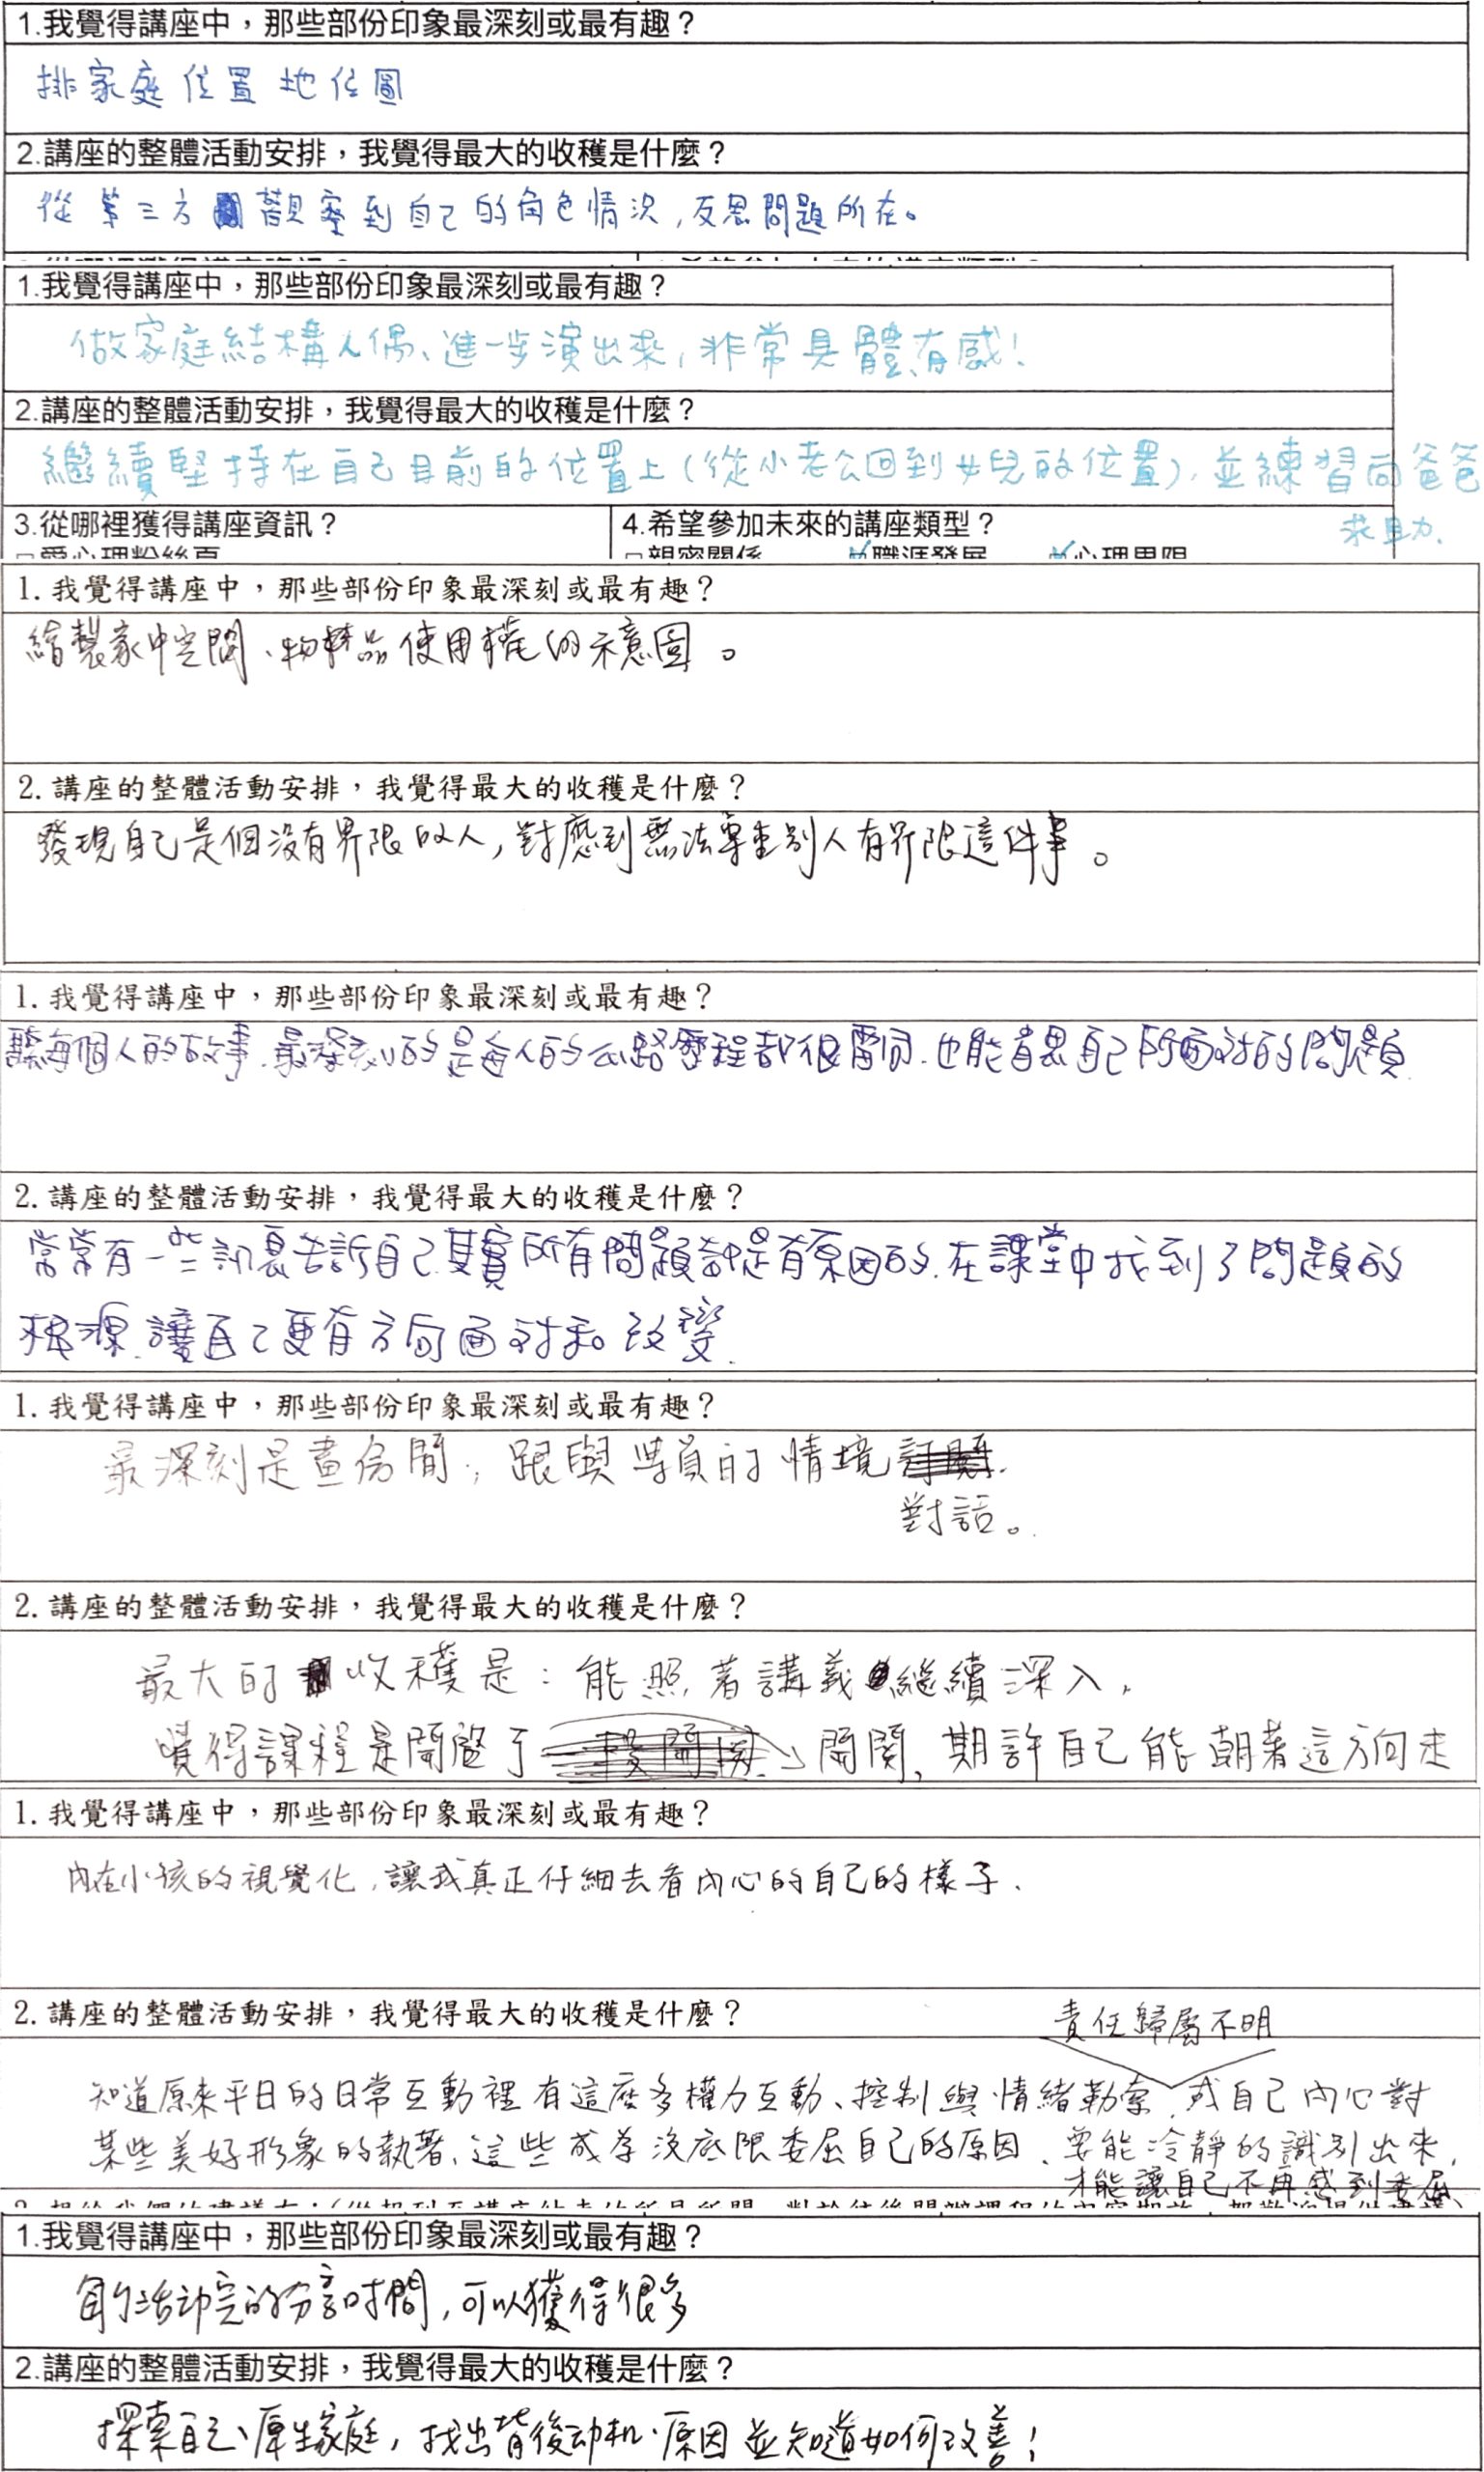 1.我覺得講座中，那些部份印象最深刻或最有趣？
排家庭位置地位圖
2.講座的整體活動安排，我覺得最大的收穫是什麼？
從第三方觀察到自己的角色情況，反思問題所在。
1.我覺得講座中，那些部份印象最深刻或最有趣？
做家庭結構人偶、進一步演出來，非常具體、有感！
2.講座的整體活動安排，我覺得最大的收穫是什麼？
繼續堅持在自己目前的位置上（從小老公回到女兒的位置），並練習向爸爸
求助.
3.從哪裡獲得講座資訊？ 4.希望參加未來的講座類型？
□愛心理粉絲頁 □親密關係 ☑職涯發展 ☑心理界限
1. 我覺得講座中，那些部份印象最深刻或最有趣？
繪製家中空間、物品使用權的示意圖。
2. 講座的整體活動安排，我覺得最大的收穫是什麼？
發現自己是個沒有界限的人，對應到無法尊重別人有界限這件事。
1. 我覺得講座中，那些部份印象最深刻或最有趣？
聽每個人的故事.最深刻的是每人的心路歷程都很雷同.也能省思自己所面對的問題.
2. 講座的整體活動安排，我覺得最大的收穫是什麼？
常常有一些訊息告訴自己.其實所有問題都是有原因的.在課堂中找到了問題的
根源.讓自己更有方向面對和改變.
1. 我覺得講座中，那些部份印象最深刻或最有趣？
最深刻是畫房間，跟與學員的情境
對話。
2. 講座的整體活動安排，我覺得最大的收穫是什麼？
最大的收穫是：能照著講義繼續深入，
覺得課程是開啟了開關，期許自己能朝著這方向走
1. 我覺得講座中，那些部份印象最深刻或最有趣？
內在小孩的視覺化，讓我真正仔細去看內心的自己的樣子.
2. 講座的整體活動安排，我覺得最大的收穫是什麼？
責任歸屬不明
知道原來平日的日常互動裡有這麼多權力互動、控制與情緒勒索，或自己內心對
某些美好形象的執著、這些成為沒底限委屈自己的原因、要能冷靜的識別出來，
才能讓自己不再感到委屈
1.我覺得講座中，那些部份印象最深刻或最有趣？
每個活動完的分享時間，可以獲得很多
2.講座的整體活動安排，我覺得最大的收穫是什麼？
探索自己、原生家庭，找出背後动机、原因並知道如何改善！